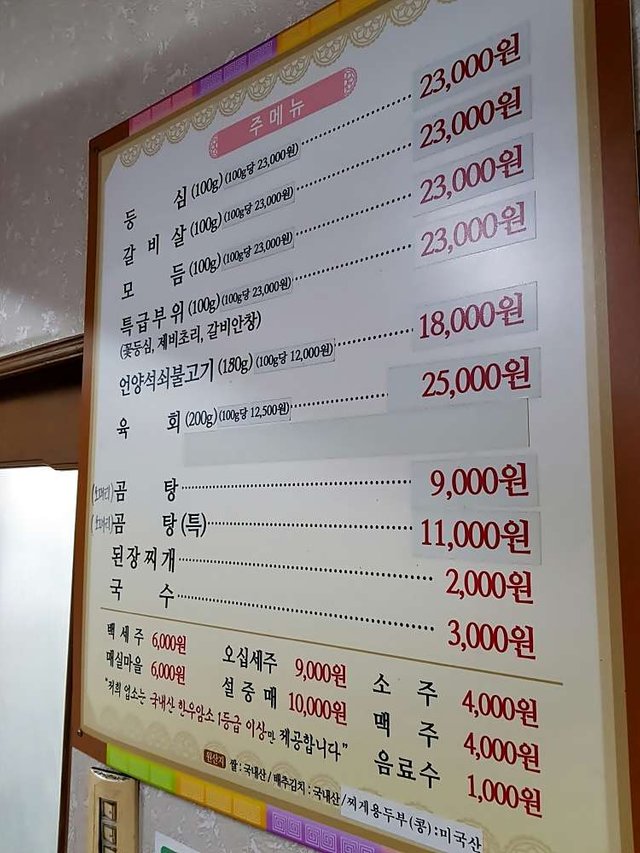 주메뉴
등 심 (100g) (100g당 23,000원) 23,000원
갈 비 살 (100g) (100g당 23,000원) 23,000원
모 듬 (100g) (100g당 23,000원) 23,000원
특급부위 (100g) (100g당 23,000원) 23,000원
(꽃등심, 제비초리, 갈비안창)
언양석쇠불고기 (150g) (100g당 12,000원) 18,000원
육 회 (200g) (100g당 12,500원) 25,000원
곰 탕 9,000원
곰 탕 (특) 11,000원
된장찌개 2,000원
국 수 3,000원
백 세 주 6,000원 오십세주 9,000원 소 주 4,000원
매실마을 6,000원 설 중 매 10,000원 맥 주 4,000원
"저희 업소는 국내산 한우암소 1등급 이상만 제공합니다" 음료수 1,000원
원산지 쌀 : 국내산 / 배추김치 : 국내산 / 찌개용두부(콩) : 미국산